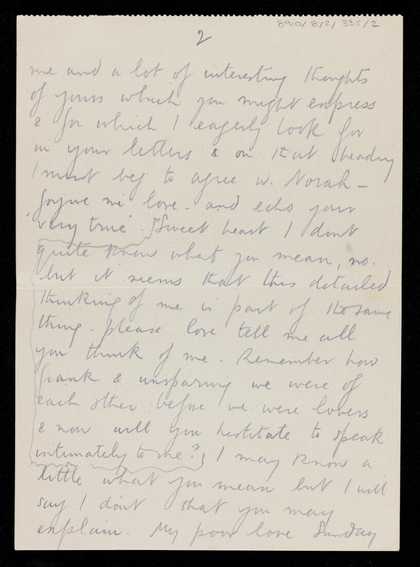 8901/8/2/335/2
2
me and a lot of interesting thoughts
of yours which you might express
& for which I eagerly look for
in your letters & on that heading
I must beg to agree w. Norah –
forgive me love – and echo your
'very true'. [Sweet heart I dont
quite know what you mean, no.
but it seems that this detailed
thinking of me is part of the same
thing. please love tell me all
you think of me. Remember how
frank & unsparing we were of
each other before we were lovers
& now will you hestitate to speak
intimately to me?] I may know a
little what you mean but I will
say I dont that you may
explain. My poor love Sunday